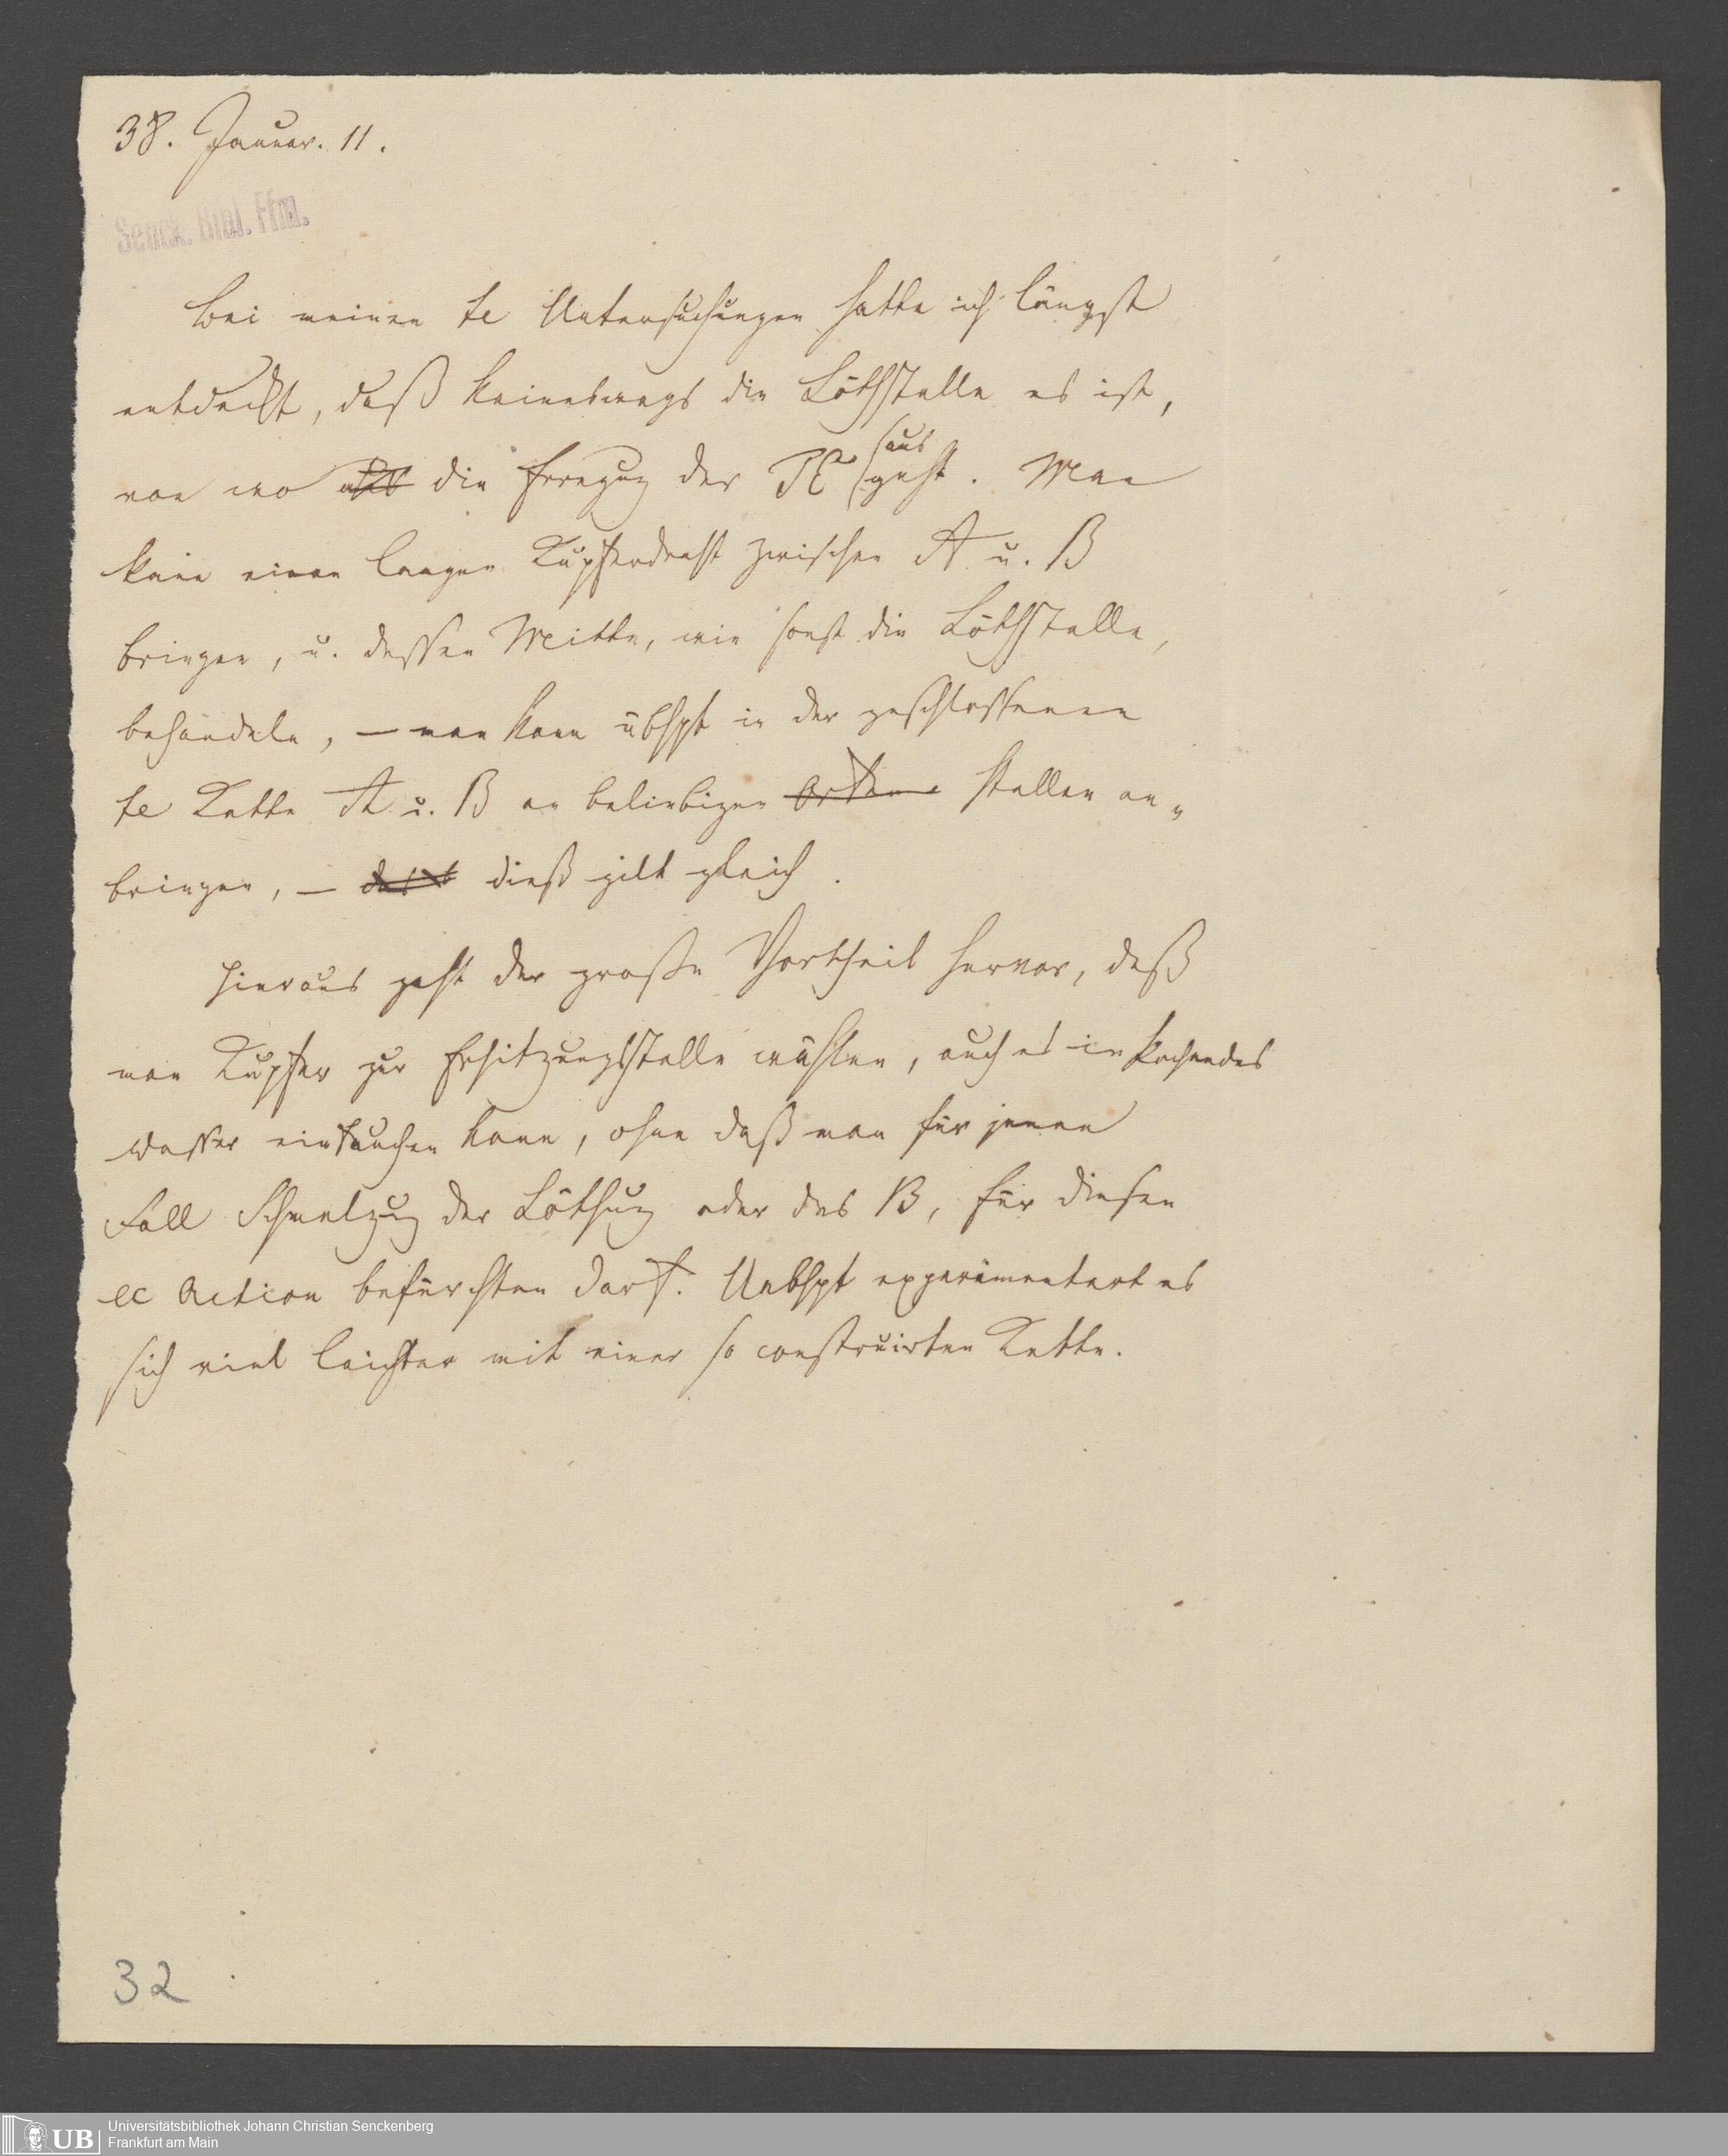 38. Januar. 11.
Senck. Bibl. Ffm.
Bei meinen te Untersuchungen hatte ich längst
entdeckt, daß keineswegs die Löthstelle es ist,
von wo die Erregug der TE ausgeht. Man
kann einen langen Kupferdraht zwischen A u. B
bringen, u. dessen Mitte, wie sonst die Löthstelle,
behandeln, – man kann übhpt in der geschlossenen
te Kette A u. B an beliebigen Orten Stellen an„
bringen, – dieß gilt gleich.
Hieraus geht der große Vortheil hervor, daß
man Kupfer zur Erhitzungsstelle wählen, auch es in kochendes
Wasser eintauchen kann, ohne daß man für jenen
Fall Schmelzug der Löthug oder des B, für diesen
ec Action befürchten darf. Uebhpt experimentert es
sich viel leichter mit einer so construirten Kette.
32
UB Universitätsbibliothek Johann Christian Senckenberg
Frankfurt am Main